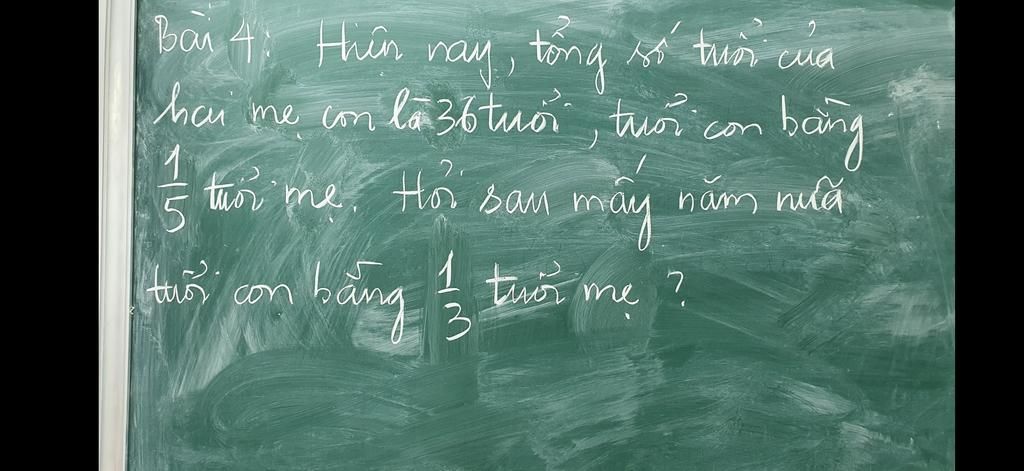 Bài 4: Hiện nay, tổng số tuổi của
hai mẹ con là 36 tuổi, tuổi con bằng
1/5 tuổi mẹ. Hỏi sau mấy năm nữa
tuổi con bằng 1/3 tuổi mẹ ?